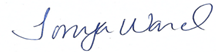 Tonya Ward